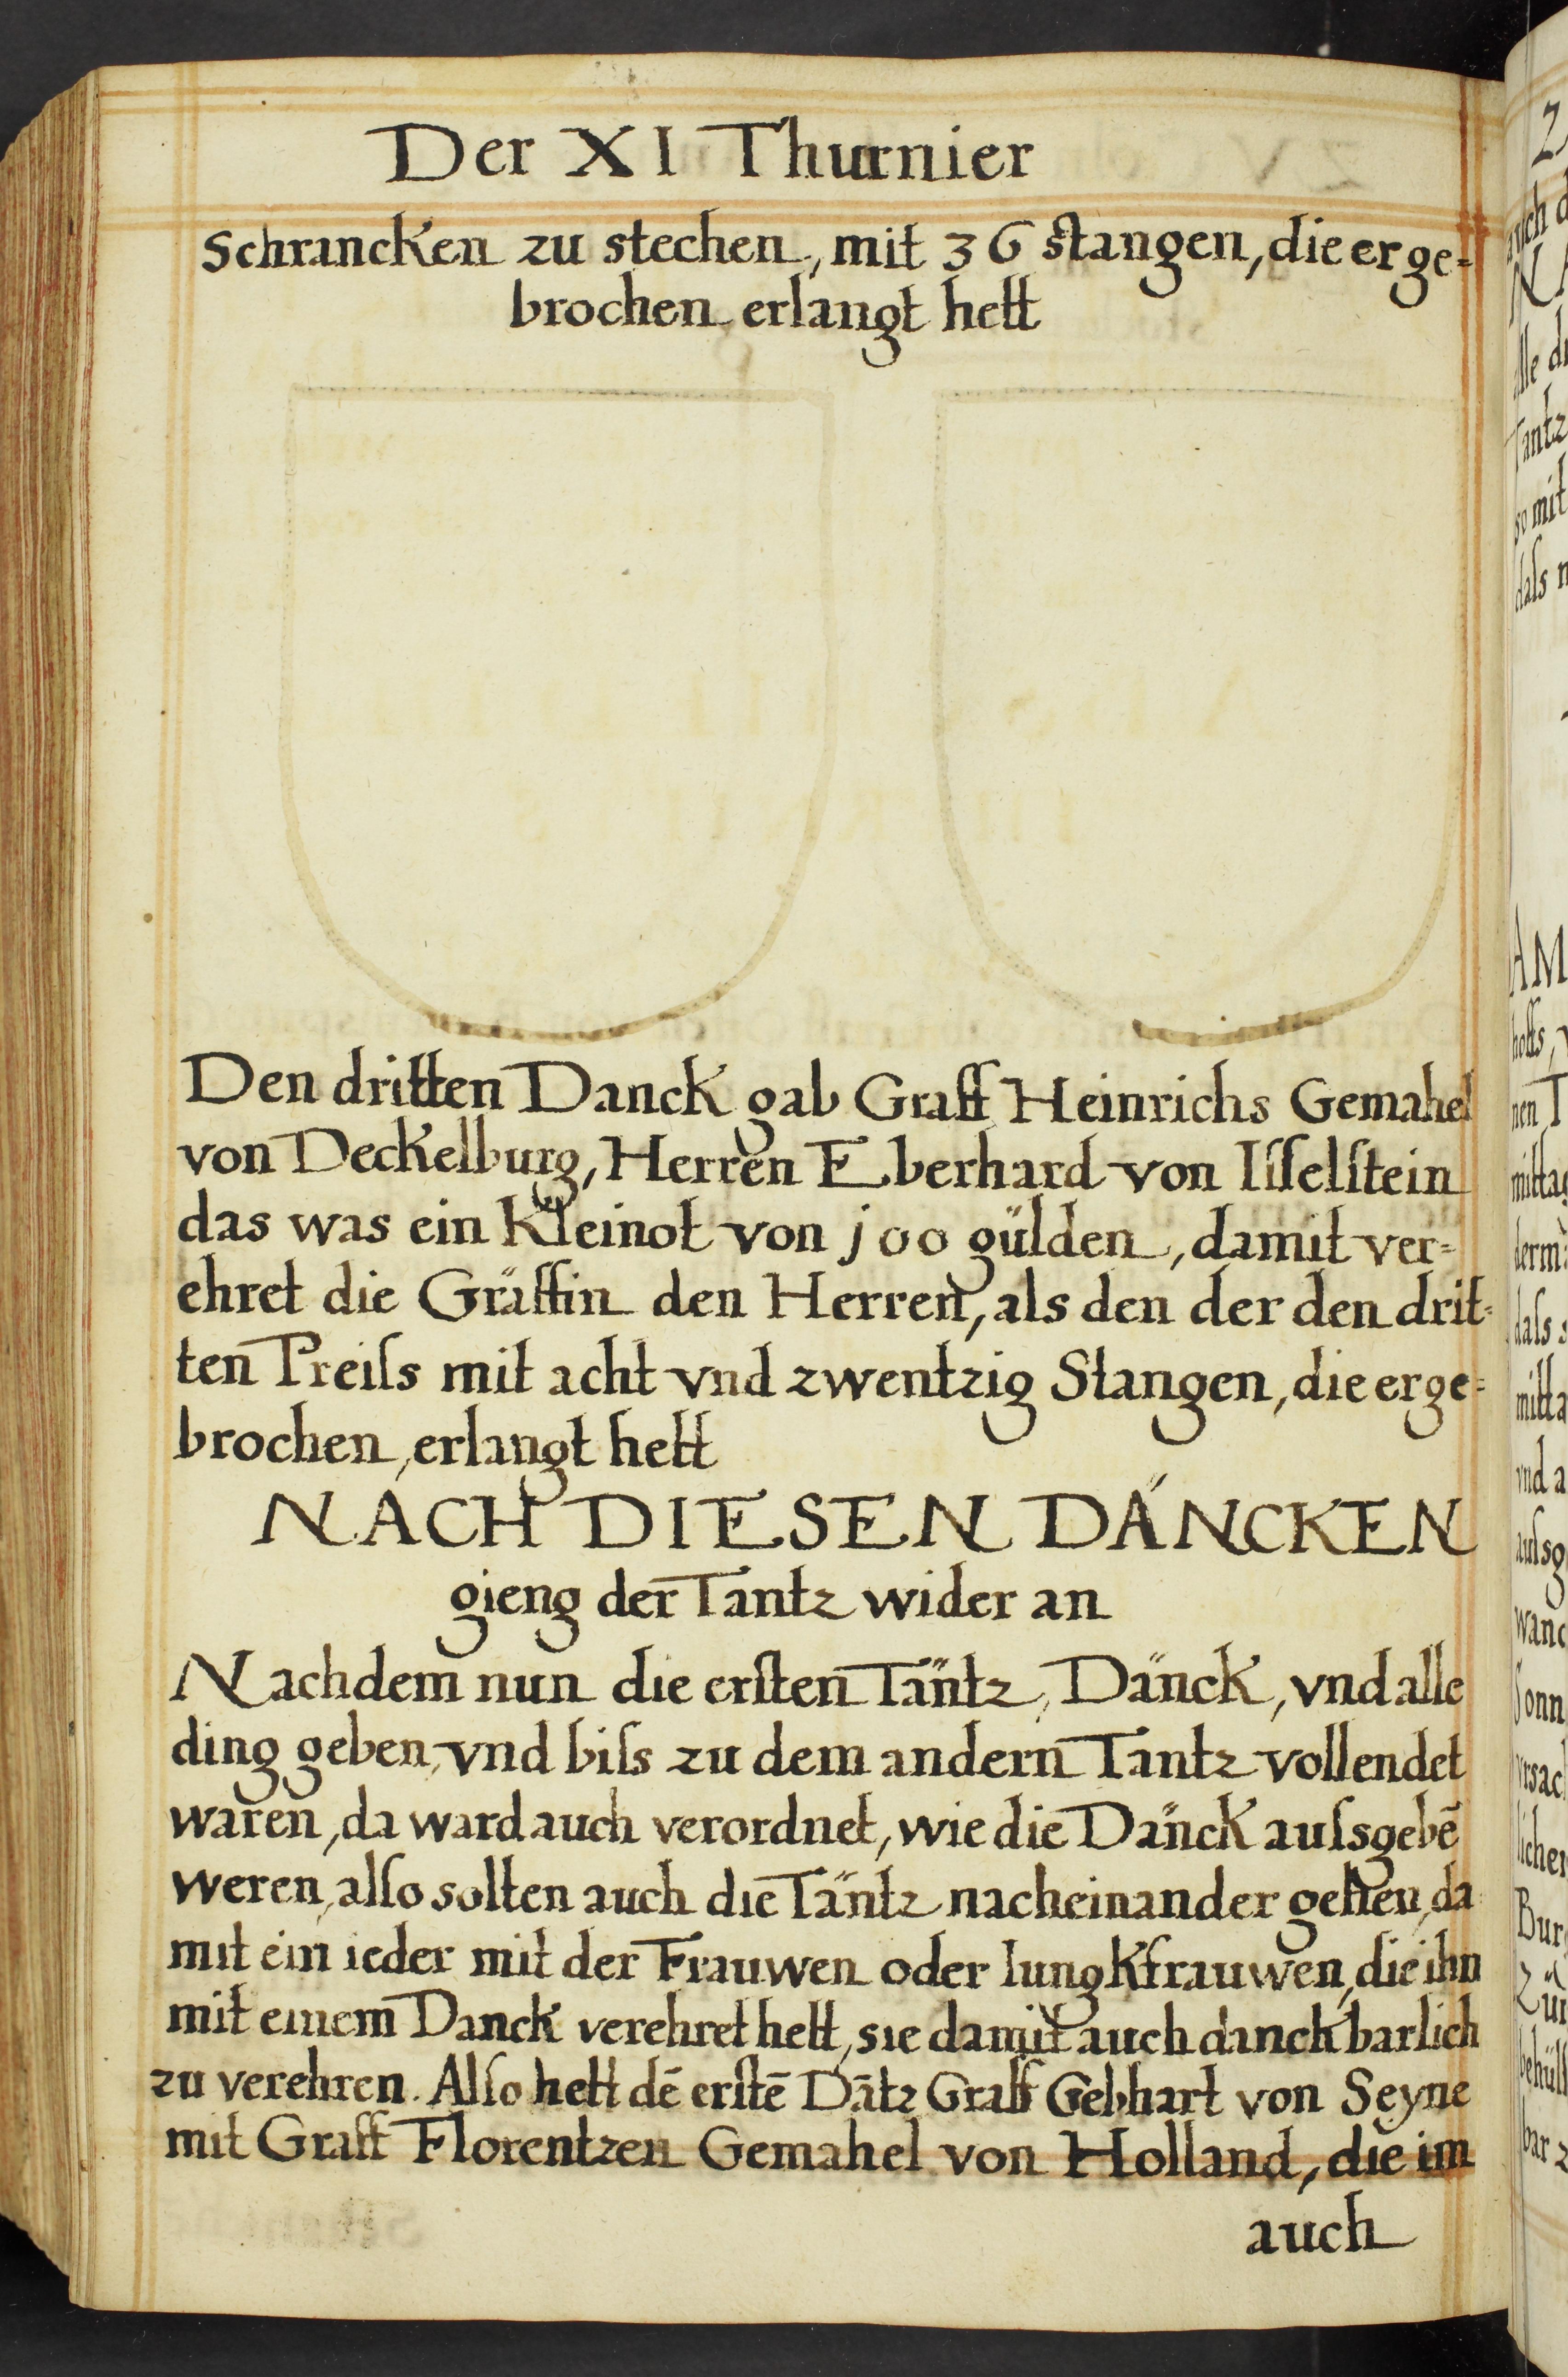 Der XI Thurnier
Schrancken zu stechen, mit 36 stangen, die er ge=
brochen erlangt hett
Den dritten Danck gab Graff Heinrichs Gemahel
von Deckelburg, Herren Eberhard von Iſſelſtein
das was ein Kleinot von joo gülden, damit ver=
ehret die Gräffin den Herren, als den der den drit=
ten Preiſs mit acht vnd zwentzig Stangen, die er ge=
brochen, erlangt hett
NACH DIESEN DÄNCKEN
gieng der Tantz wider an
Nachdem nun die erſten Täntz, Dänck, vnd alle
ding geben, vnd biſs zu dem andern Tantz vollendet
waren, da ward auch verordnet, wie die Dänck auſsgebē
weren, alſo solten auch die Täntz nacheinander gehen, da
mit ein ieder mit der Frauwen oder Iungkfrauwen, die ihn
mit einem Danck verehret hett, sie damit auch danckbarlich
zu verehren. Alſo hett dē erſtē Dātz Graff Gebhart von Seyne
mit Graff Florentzen Gemahel von Holland, die im
auch